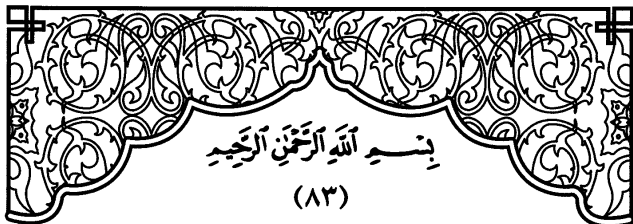 بِسْمِ ٱللَّهِ ٱلرَّحْمَٰنِ ٱلرَّحِيمِ
(٨٣)